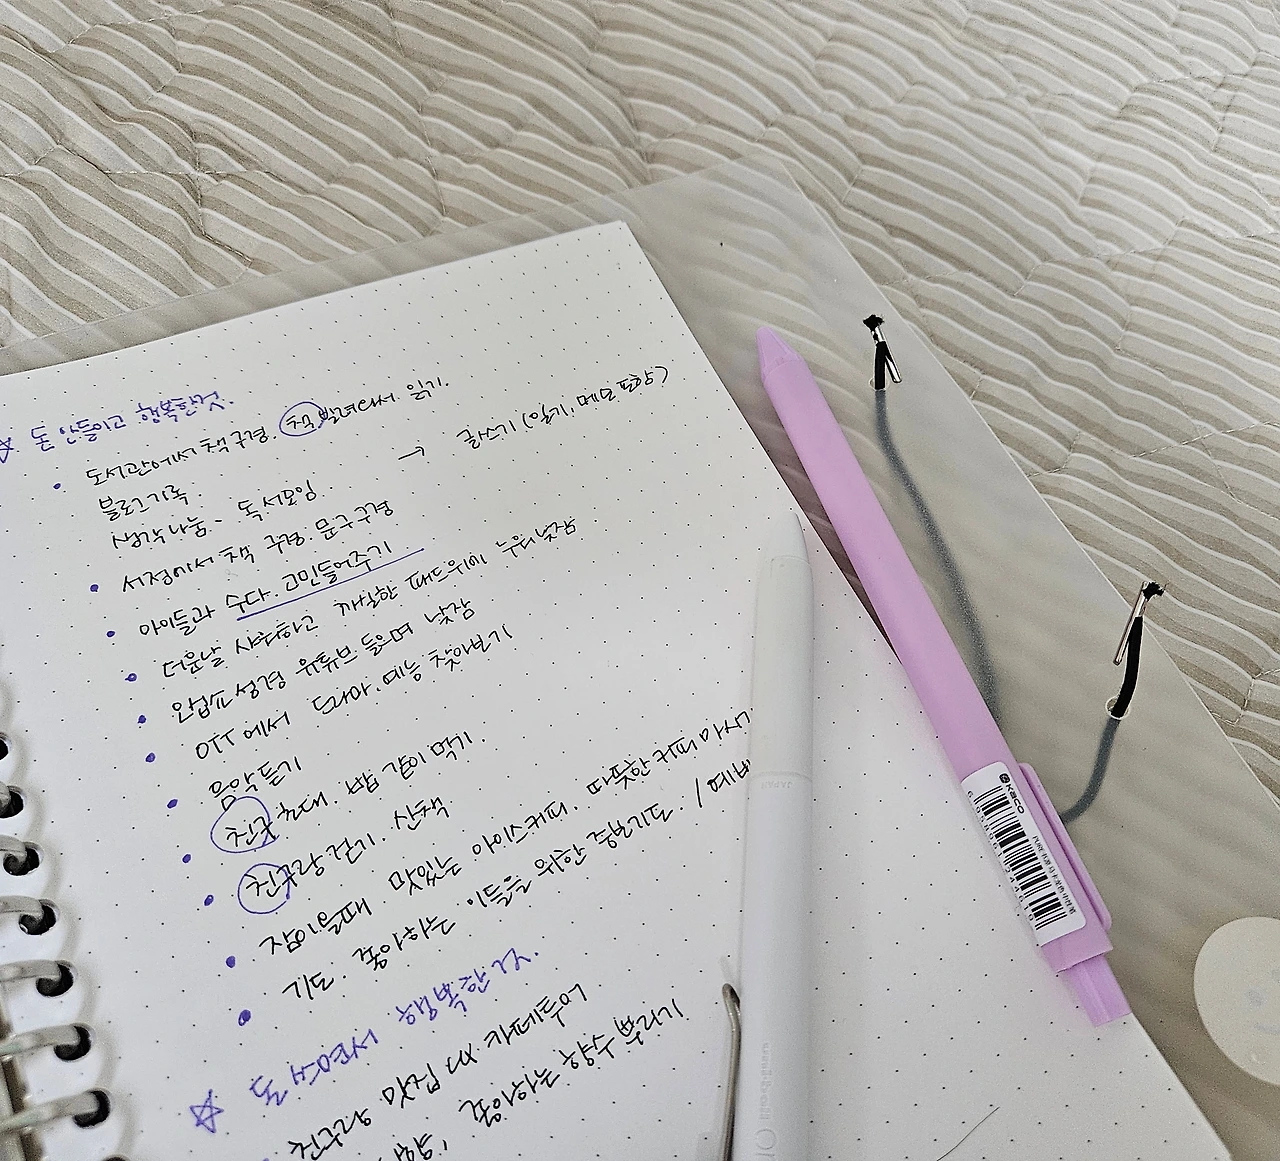 ☆ 돈 안들이고 행복한것.
• 도서관에서 책구경. 책빌려다서 읽기.
블로그기록. → 글쓰기 (일기, 메모 포함)
생각나눔 - 독서모임
• 서점에서 책 구경. 문구구경
• 아이들과 수다. 고민들어주기
• 더운날 샤워하고 까실한 패드위에 누워 낮잠
• 성경 유튜브 들으며 낮잠
• OTT에서 드라마. 예능 찾아보기
• 음악듣기
• 친구 초대. 밥 같이 먹기.
• 친구랑 걷기. 산책
• 잠이올때 맛있는 아이스커피. 따뜻한 커피 마시
• 기도. 좋아하는 이들을 위한 중보기도. / 예배
☆ 돈 써서 행복한
친구랑 맛집 카페투어
좋아하는 향수 뿌리기
KACO
JAPAN